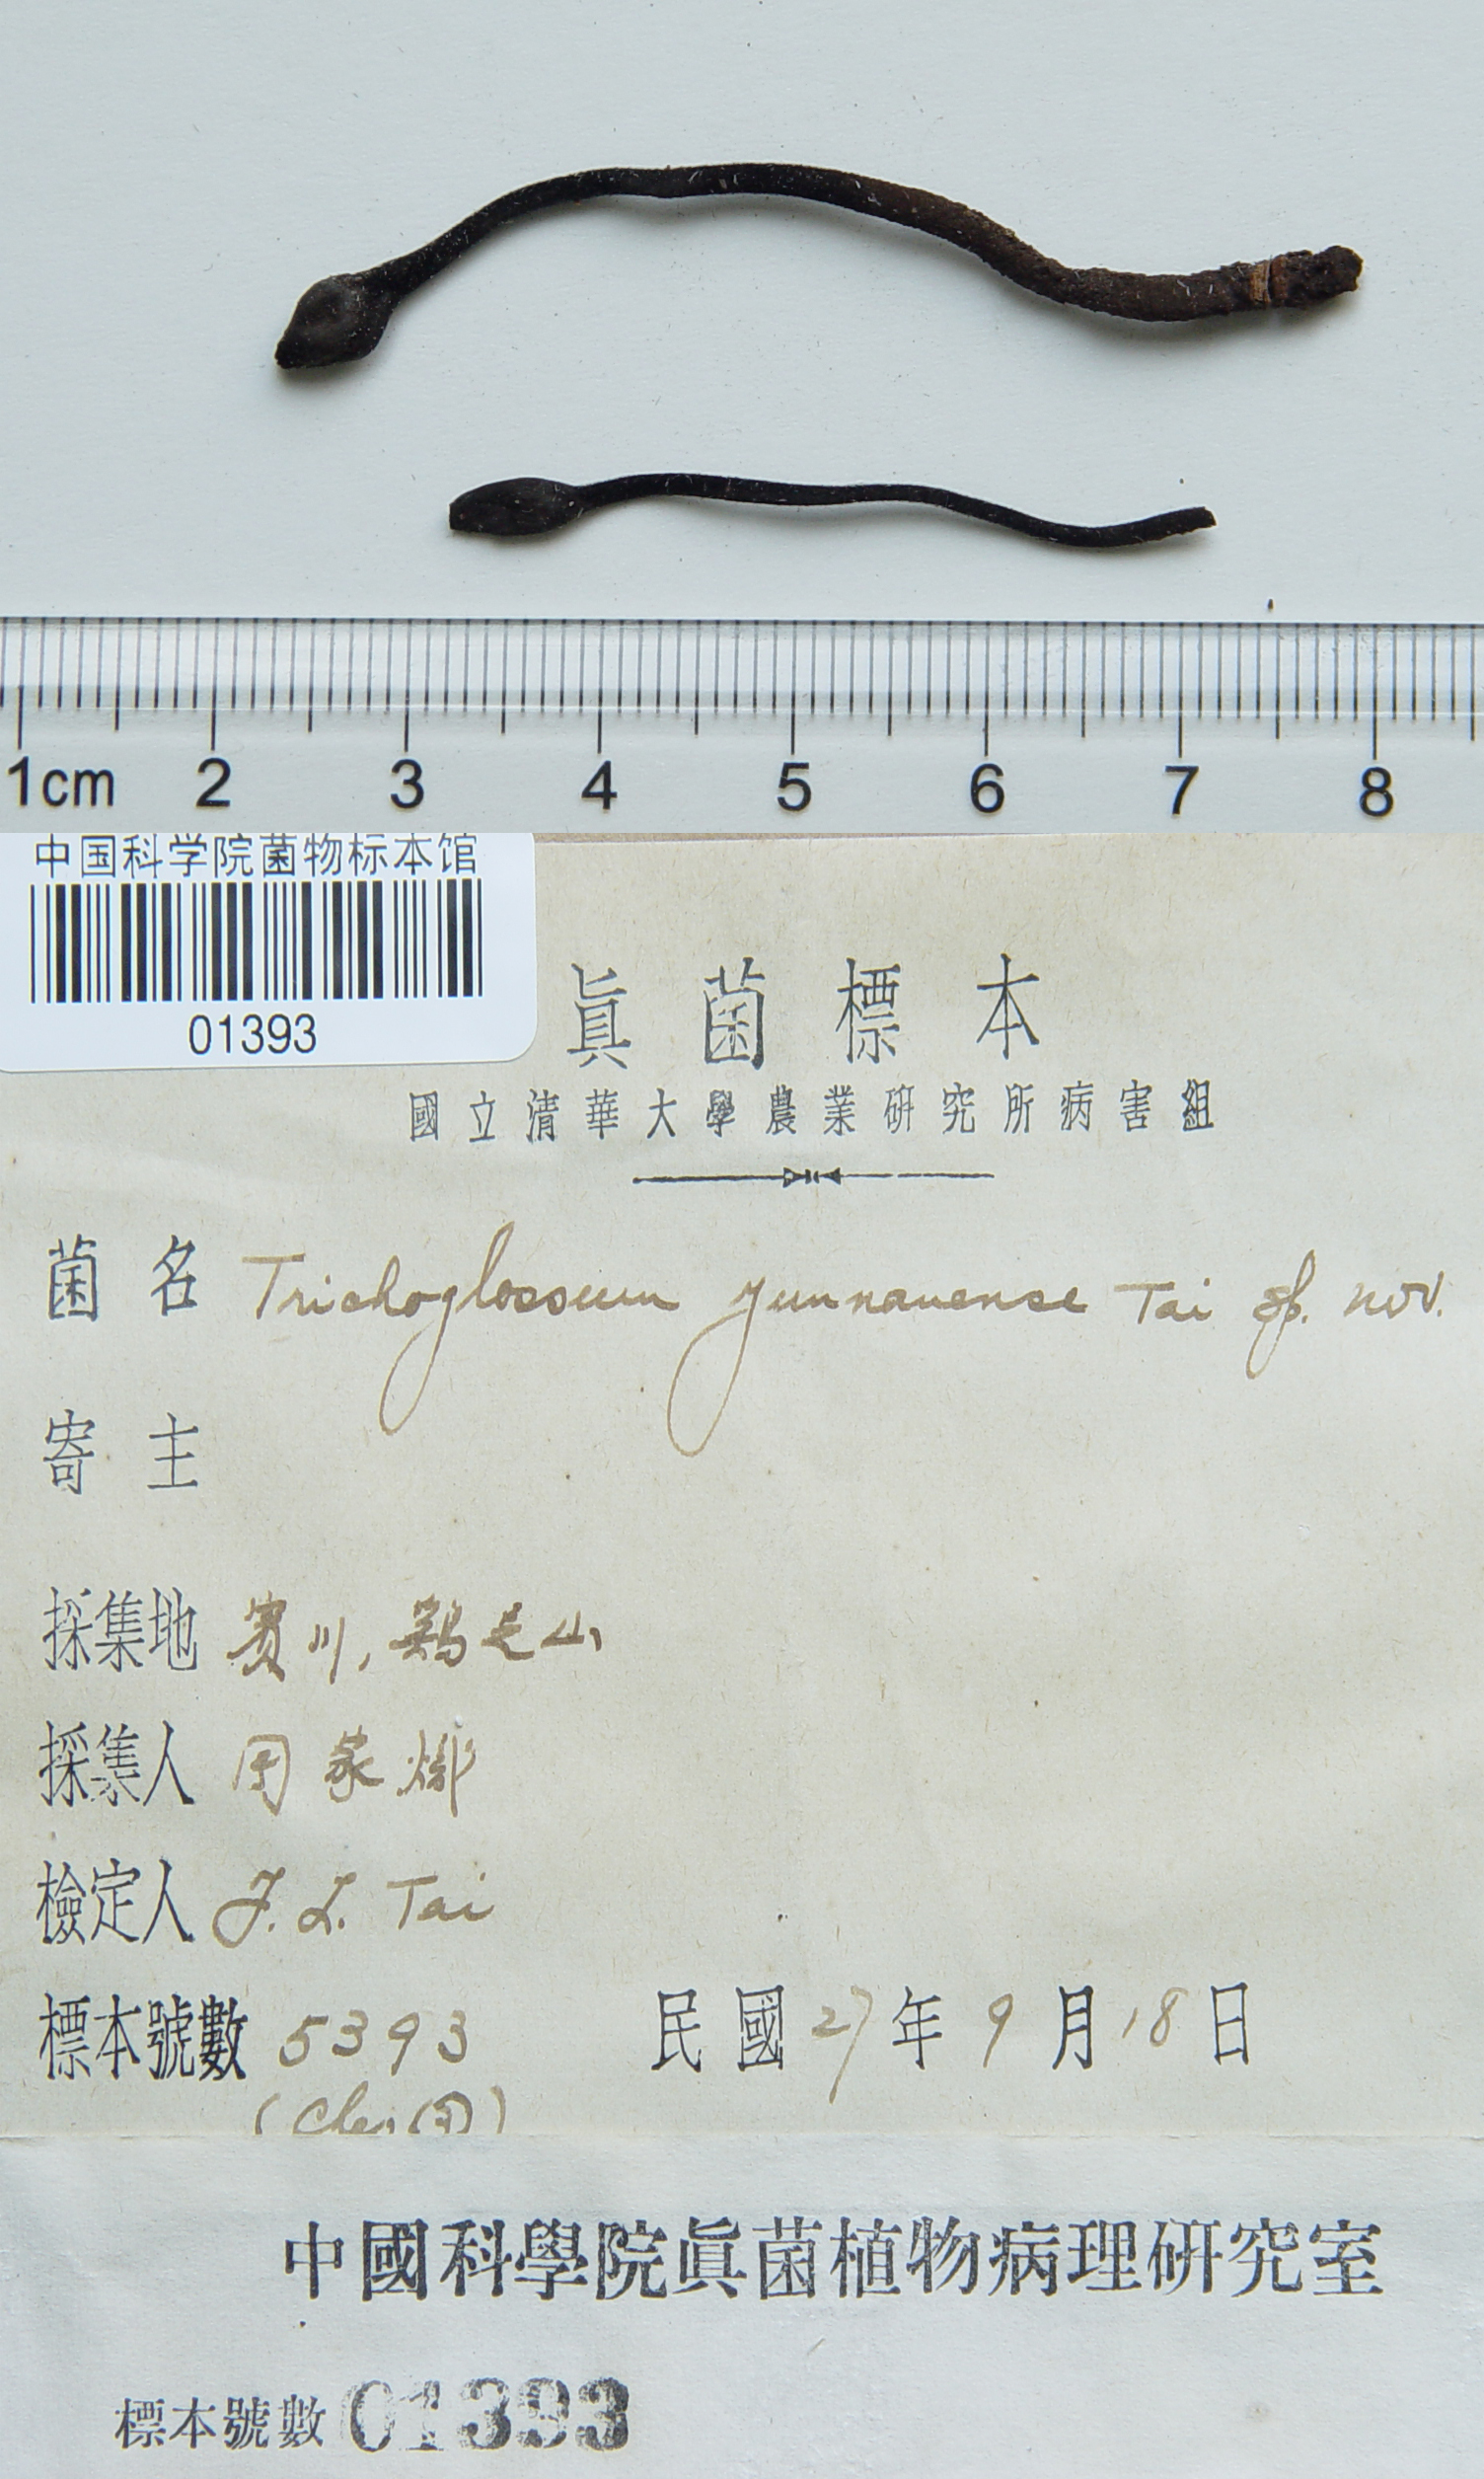 1cm 2 3 4 5 6 7 8
中国科学院菌物标本馆
01393
眞菌標本
國立清華大學農業研究所病害組
菌名 Trichoglossum yunnanense Tai sp. nov.
寄主
採集地 賓川，鷄足山
採集人 周家熾
檢定人 F. L. Tai
標本號數 5393 民國27年9月18日
(周)
中國科學院眞菌植物病理研究室
標本號數 01393